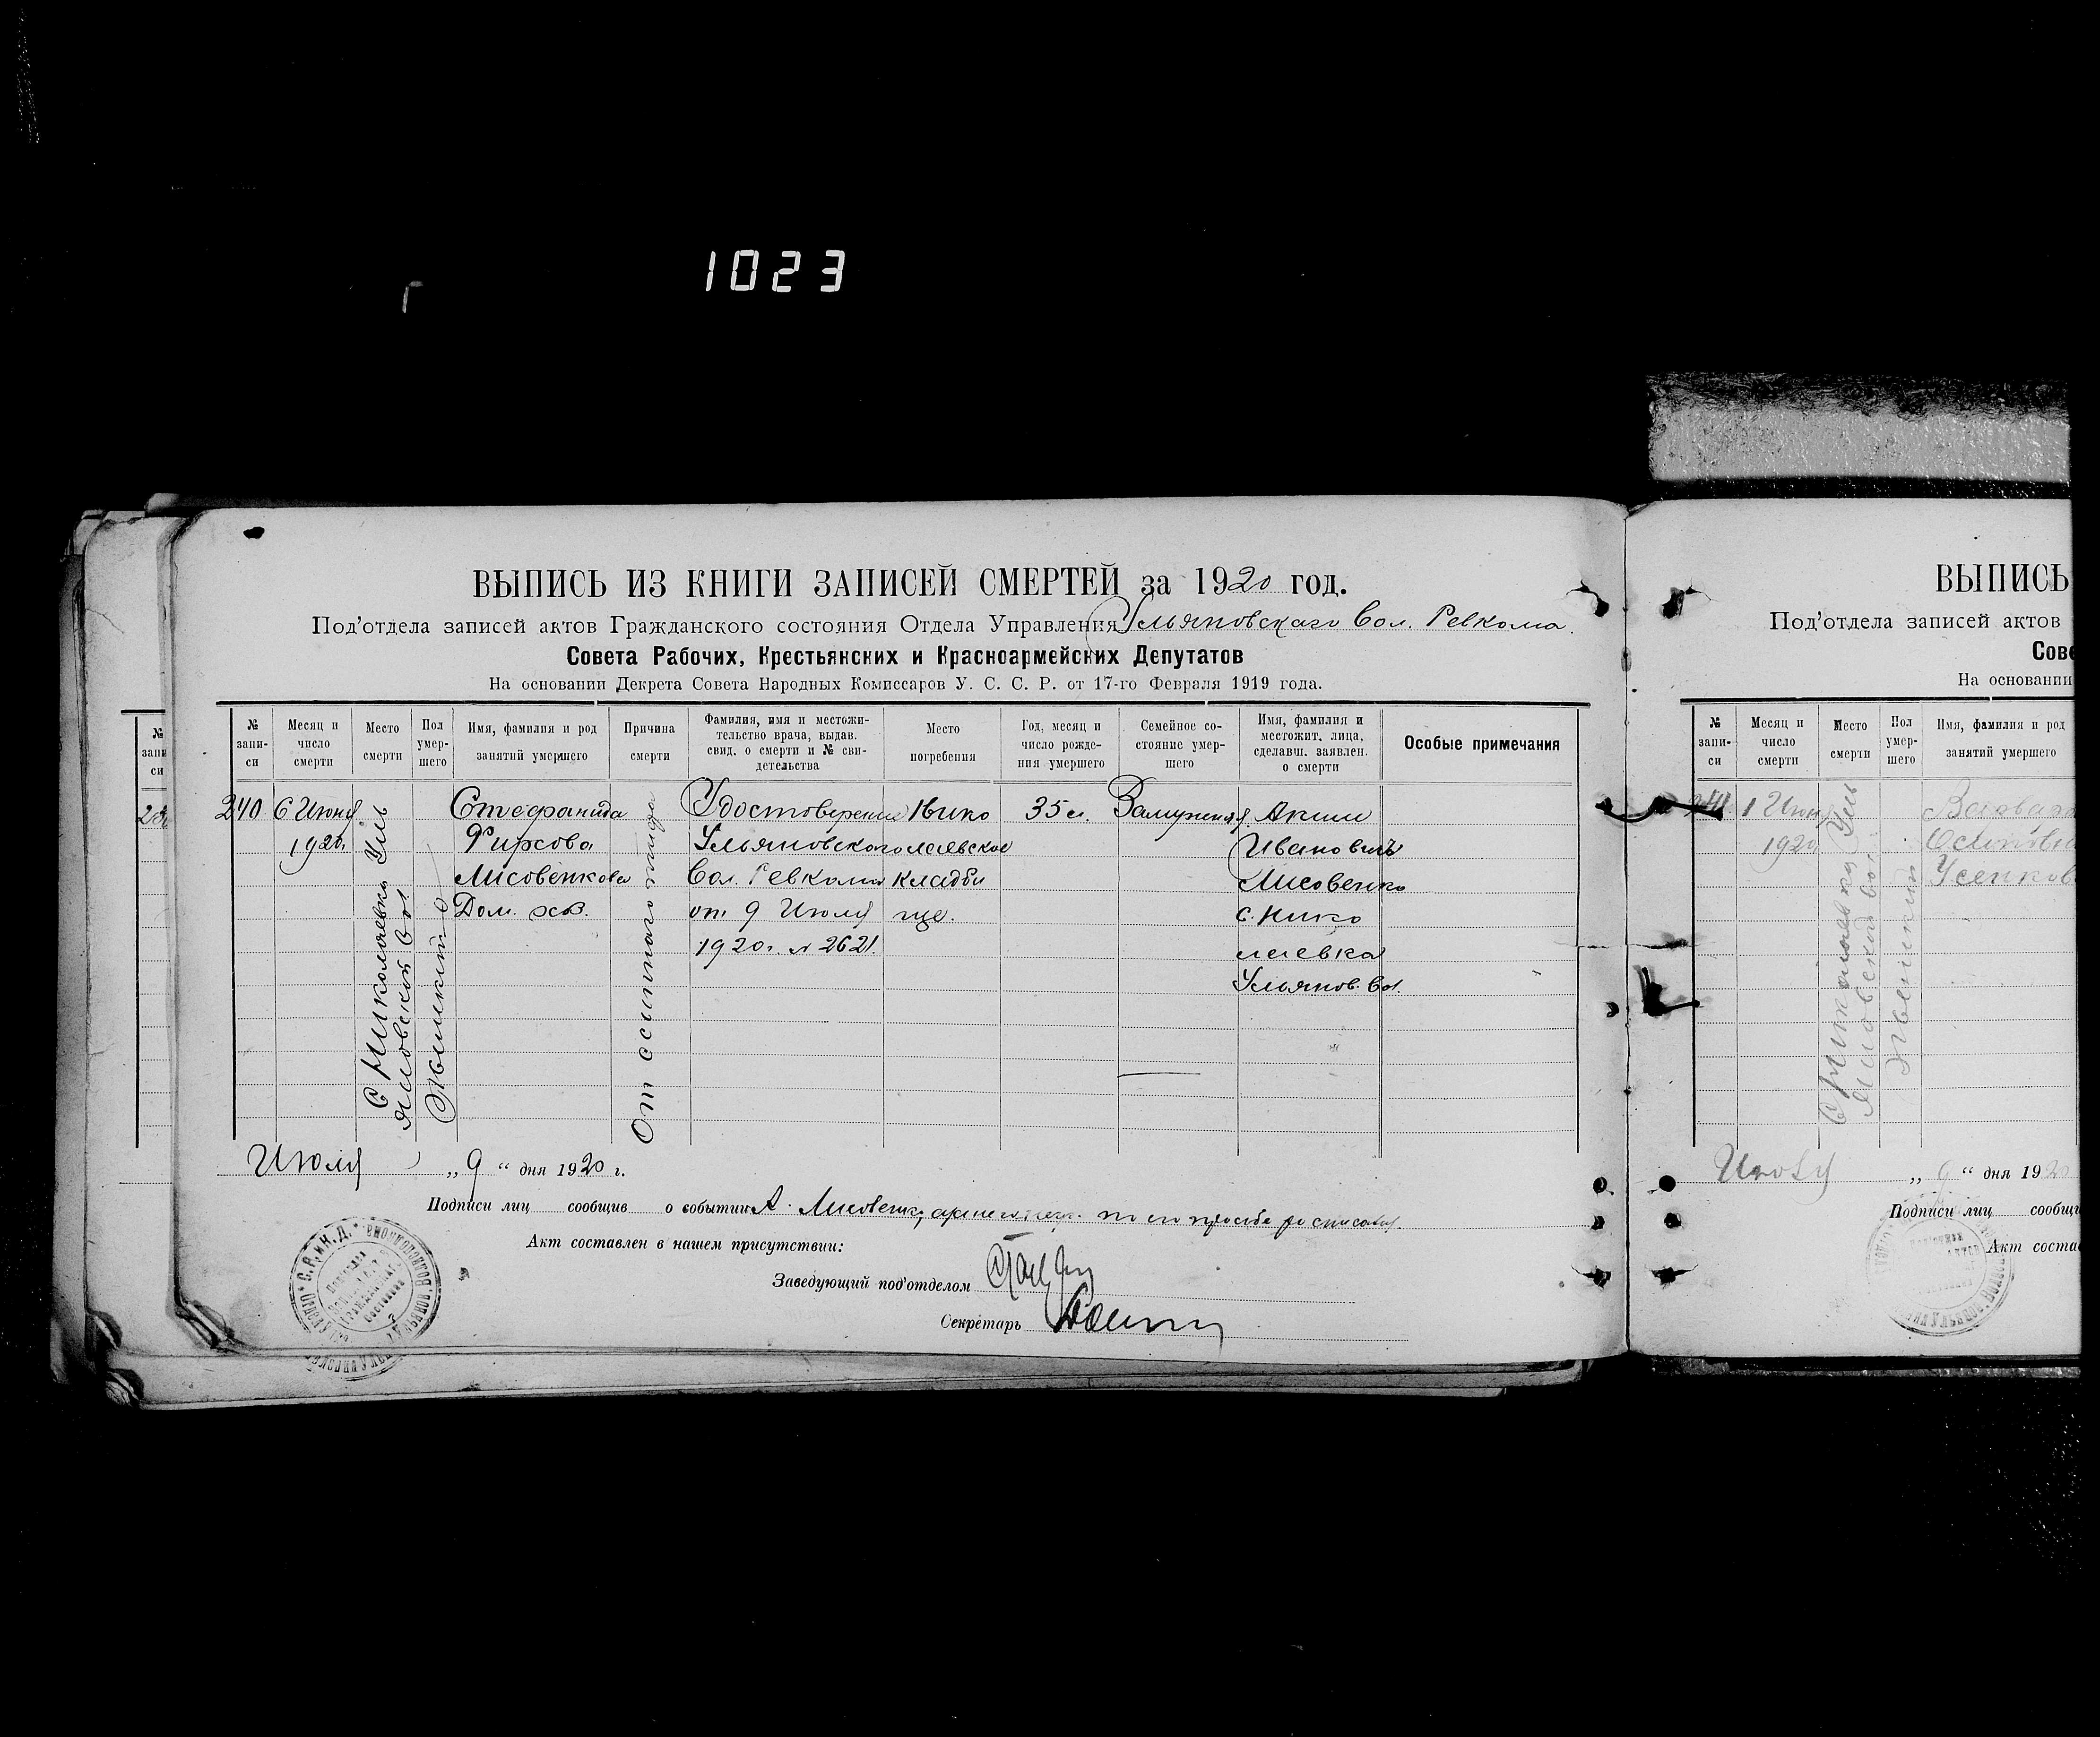 1023
ВЫПИСЬ ИЗ КНИГИ ЗАПИСЕЙ СМЕРТЕЙ за 1920 год.
Под'отдела записей актов Гражданского состояния Отдела Управления Ульяновскаго Вол. Ревкома.
Совета Рабочих, Крестьянских и Красноармейских Депутатов
На основании Декрета Совета Народных Комиссаров У. С. С. Р. от 17-го Февраля 1919 года.
№ запи-си
Месяц и число смерти
Место смерти
Пол умер-шего
Имя, фамилия и род занятий умершего
Причина смерти
Фамилия, имя и местожи-тельство врача, выдав. свид. о смерти и № сви-детельства
Место погребения
Год, месяц и число рожде-ния умершего
Семейное со-стояние умер-шего
Имя, фамилия и местожит. лица, сделавш. заявлен. о смерти
Особые примечания
240
6 Июня
1920г.
С Николаевка Уль
яновской Вол
Женский
Стефанида
Фирсова
Лисовенкова
Дом. хоз.
От ссыпнаго тифа
Удостоверение
Ульяновского
Вол. Ревкома
от 9 Июля
1920г. № 2621.
Нико
лаевское
кладби
ще.
35 л.
Замужняя
Аким
Иванович
Лисовенко
с. Нико
лаевка
Ульянов. Вол.
Июля „ 9 “ дня 1920 г.
Подписи лиц сообщив о событии А. Лисовенко, по его просьбе росписався
Акт составлен в нашем присутствии:
Заведующий под'отделом
Секретарь
№ запи си
ВЫПИСЬ
Под'отдела записей актов
Сове
На основании
№ запи-си
Месяц и число смерти
Место смерти
Пол умер-шего
Имя, фамилия и род занятий умершего
241
1 Июня
1920
С Николаевка Уль
яновской Вол
Женский
Осиповна
Усенкова
Июля „ 9 “ дня 1920
Подписи лиц сообщи
Акт соста